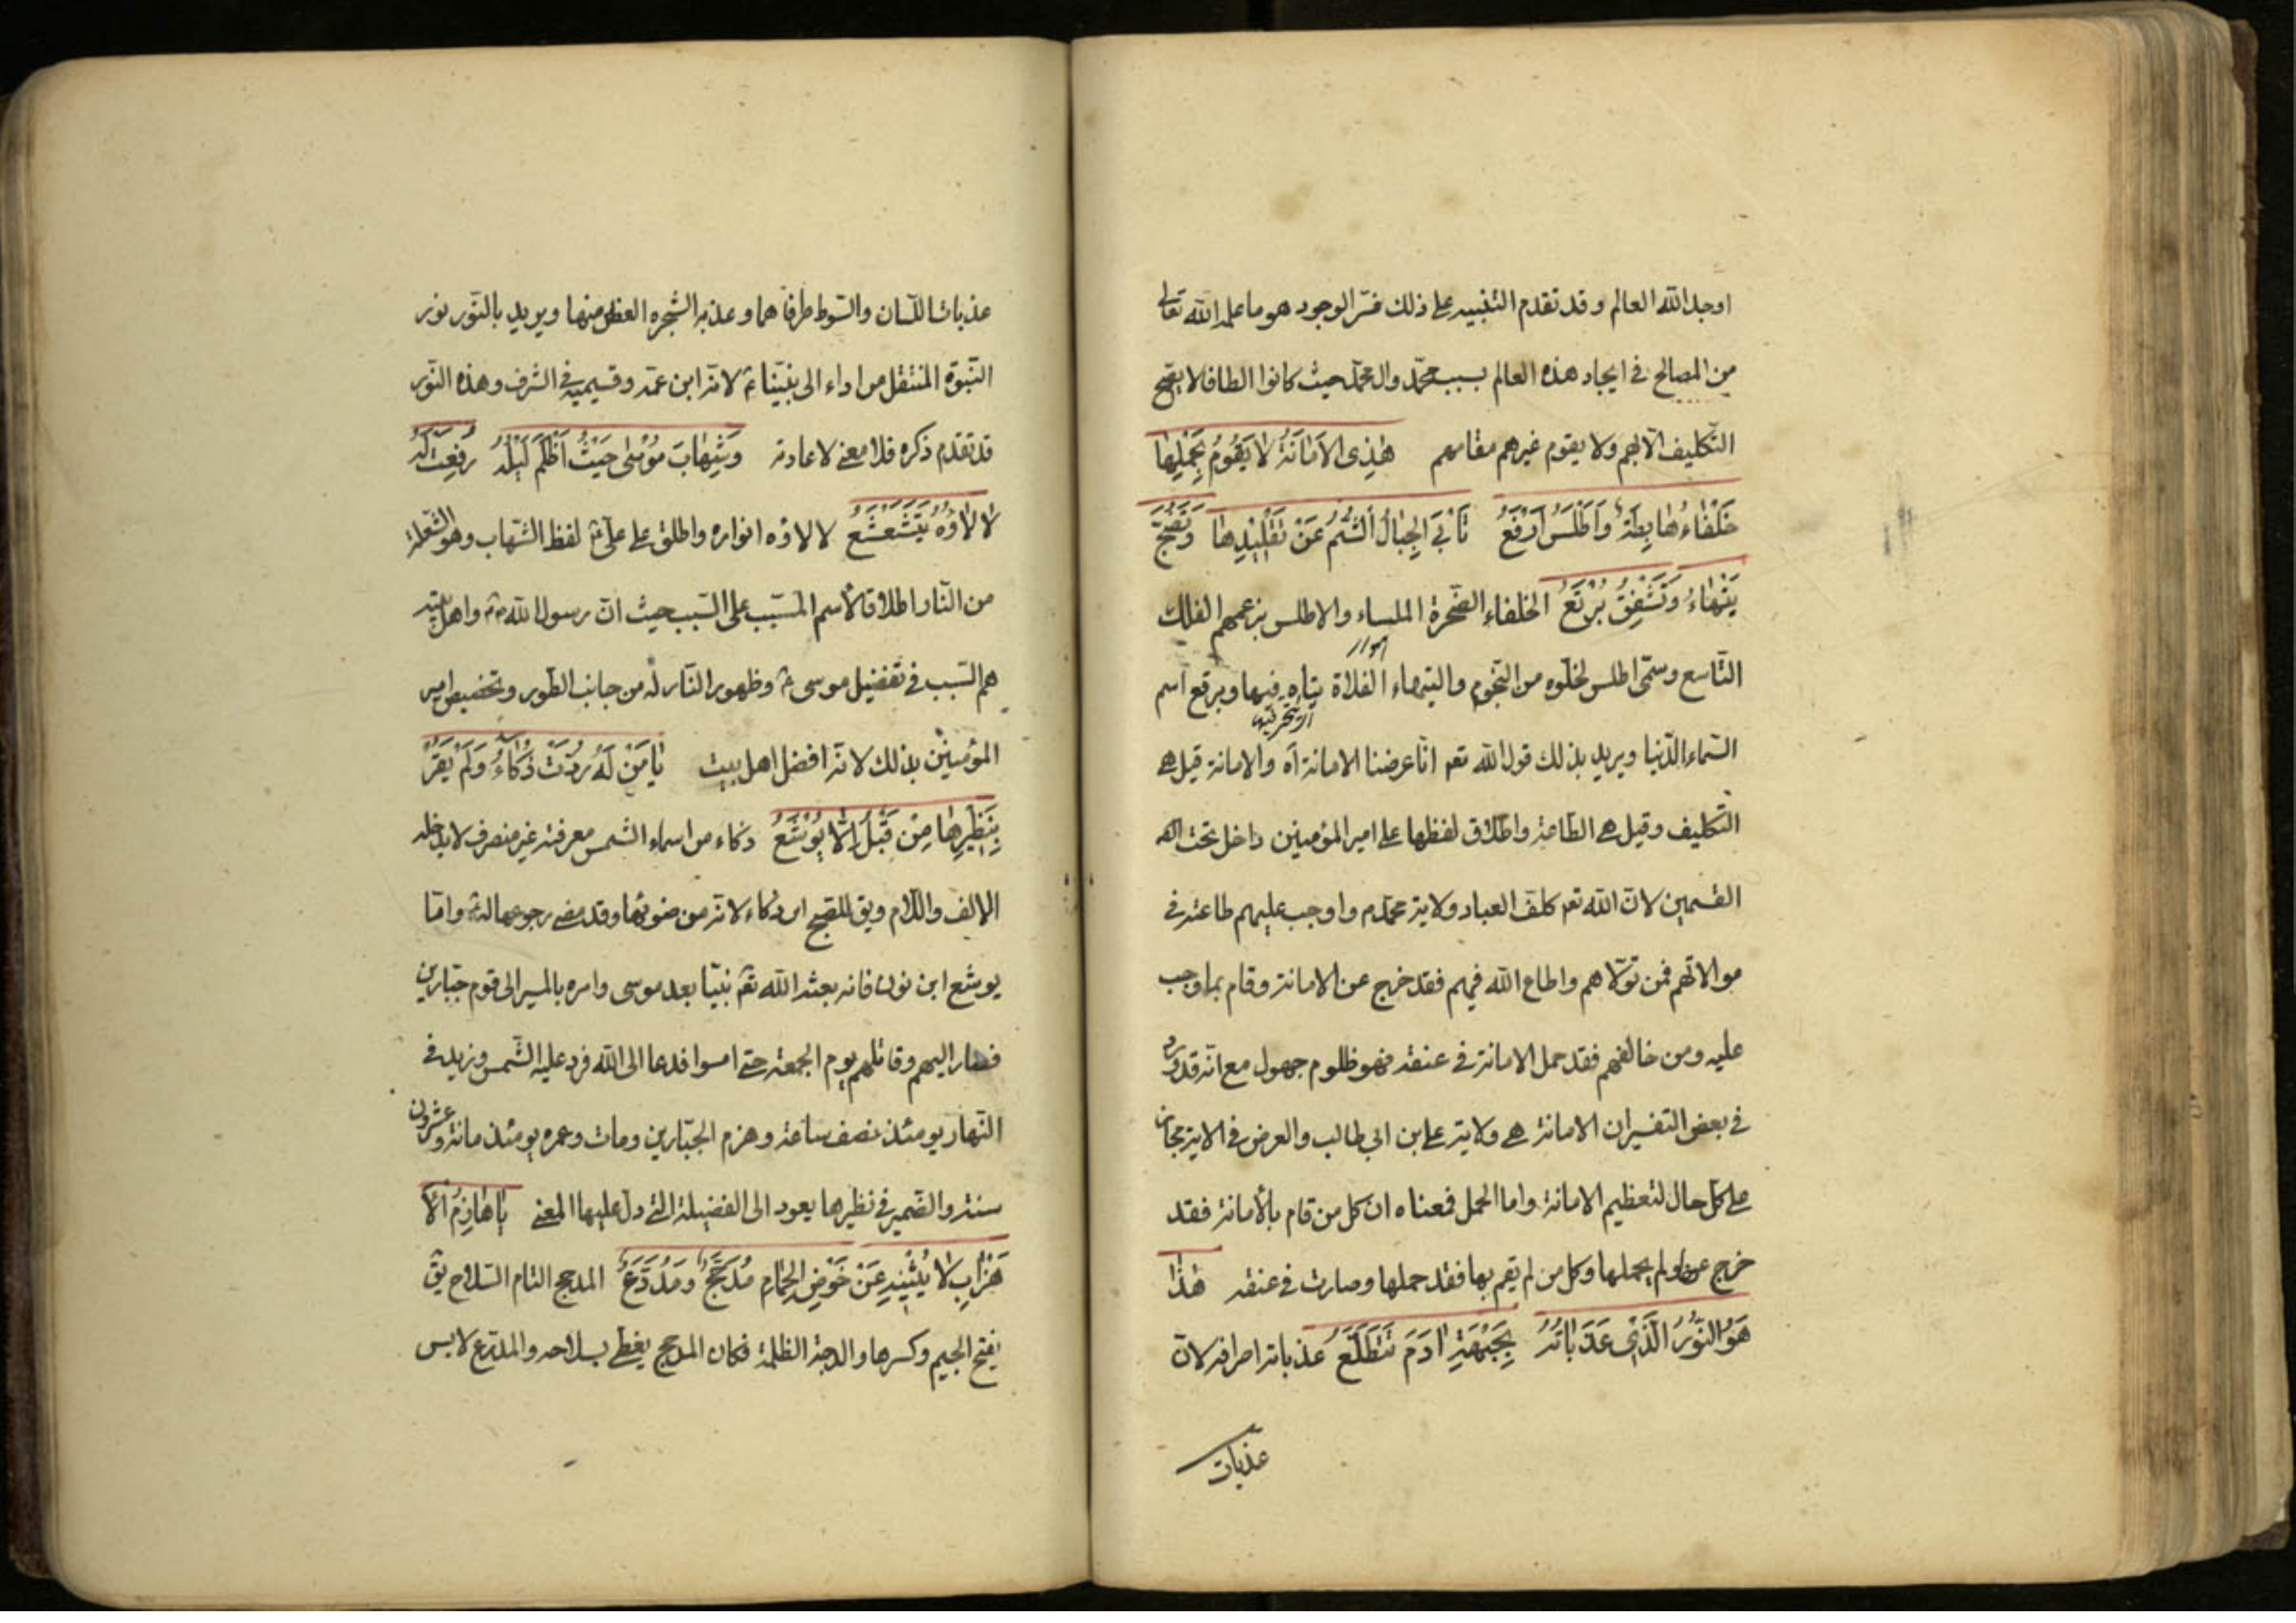 اوجد الله العالم وقد تقدم التنبيه على ذلك فسر الوجود هو ما علم الله تعالى
من المصالح فى ايجاد هذه العالم بسبب محمد وال محمد حيث كانوا الطافا لا يصح
التكليف الا بهم ولا يقوم غيرهم مقامهم هٰذِى الاَمَانَةُ لا يَقُومُ بِحَمْلِهٰا
خَلْقٰاءُ هٰابِطَةٌ وَاَطْلَسُ اَرْفَعُ تَأبَى الجِبٰالُ الشُّمُّ عَنْ تَقْلِيْدِهٰا وَتَضِجُّ
تَيْهٰاءُ وَتَشْفِقُ بُرْقَعُ الخلقاء الصّخرة الملساء والاطلس بزعمهم الفلك
التاسع وسمّى اطلس لخلّوه من النّجوم والتيهاء الفلاة يتاه فيها وبرقع اسم
السّماء الدّنيا ويريد بذلك قول الله تعه انّا عرضنا الامانة اه والامانة قيل هى
التكليف وقيل هى الطاعة واطلاق لفظها على امير المؤمنين داخل تحت
القسمين لانّ الله تعه كلّف العباد ولاية محمّد م واوجب عليهم طاعته فى
موالاتهم فمن تولّاهم واطاع الله فيهم فقد خرج عن الامانة وقام بما وجب
عليه ومن خالفهم فقد حمل الامانة فى عنقه فهو ظلوم جهول مع انّه قد ورد
فى بعض التفسير ان الامانة هى ولاية على ابن ابى طالب والعرض فى الاية مجاز
على كلّ حال لتعظيم الامانة واما الحمل فمعناه ان كل من قام بالأمانة فقد
خرج عن ولم يحملها وكل من لم يقم بها فقد حملها وصارت فى عنقه هٰذٰا
هُوَ النُّوْرُ الَّذِى عَذَبٰاتُهُ بِجَبْهَةِ اٰدَمَ تَتَطَلَّعُ عذباته اطرافه لانّ
عذبات
عذبات اللّسان والسّوط طرفاهما وعذبه الشجره الغصن منها ويريد بالنّور نور
النّبوّة المنتقل من ادم الى نبيّنا ع لانّه ابن عمّه وقسيمه فى الشرف وهذه النّور
قد تقدم ذكره فلا معنى لاعادته وَشِهٰابَ مُوْسٰى حَيْثُ اَظْلَمَ لَيْلُهُ رُفِعَتْ لَهُ
لاٰلاٰؤُهُ يَتَشَعْشَعُ لالاؤه انواره واطلق على علىّ ع لفظ الشهاب وهو الشعلة
من النّار اطلاقا لأسم المسبّب على السّبب حيث انّ رسول الله ص واهل بيته
هم السّبب فى تفضيل موسى ع وظهور النّار له من جانب الطّور وتخصيص امير
المؤمنين بذلك لانّه افضل اهل بيت يٰا مَنْ لَهُ رُدَّتْ ذُكٰاءُ وَلَمْ يَفُزْ
بِنَظِيْرِهٰا مِنْ قَبْلُ اِلّا يُوْشَعُ ذكاء من اسماء الشمس معرفة غير منصرف لا يدخله
الالف واللّام ويق للصبح ابن ذكاء لانّه من ضوئها وقد مضى رجوعها له ع وامّا
يوشع ابن نون فانه بعثه الله تعه نبيّا بعد موسى وامره بالمسير الى قوم جبّارين
فسار اليهم وقاتلهم يوم الجمعة حتى امسوا فدعا الى الله فرد عليه الشّمس وزيد فى
النّهار يومئذ نصف ساعة وهزم الجبّارين ومات وعمره يومئذ مائة وعشرون
سنة والضّمير فى نظيرها يعود الى الفضيلة التى دلّ عليها المعنى يٰا هٰازِمُ اَلاَ
حْزٰابِ لاٰ يُثْنِيْهِ عَنْ خَوْضِ الحِمٰامِ مُدَجَّجٌ وَمُدَرَّعُ المدجج التام السّلاح يق
بفتح الجيم وكسرها والدجة الظلمة فكان المدجج يغطّى بسلاحه والمدرّع لابس